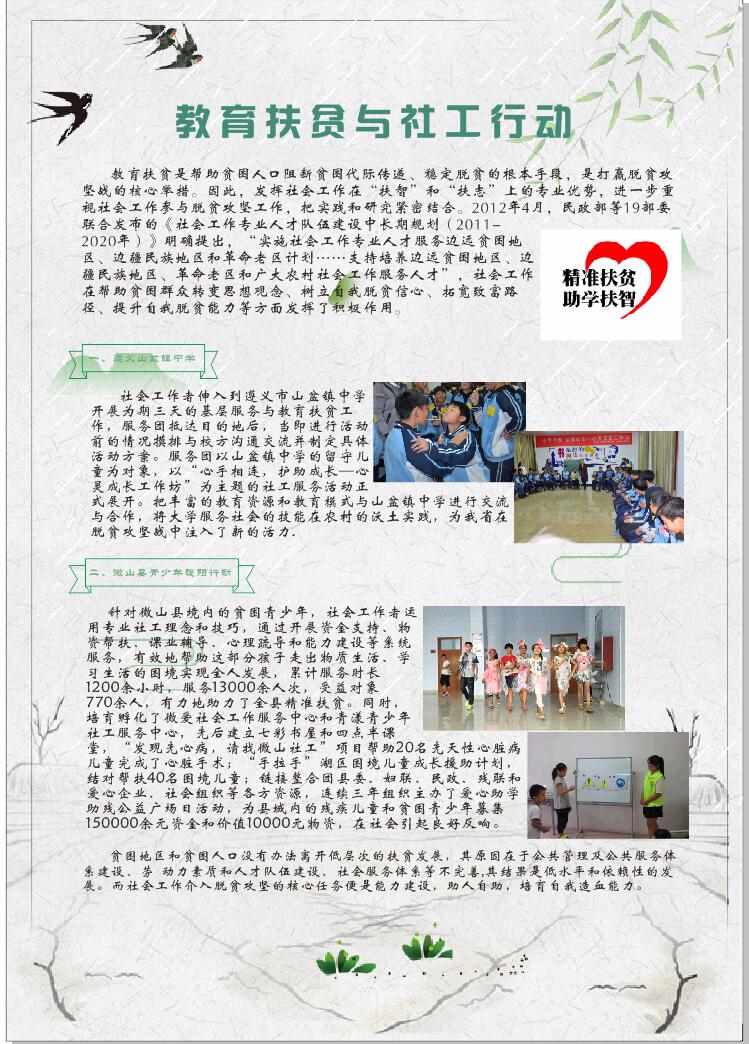 教育扶贫与社工行动
教育扶贫是帮助贫困人口阻断贫困代际传递、稳定脱贫的根本手段，是打赢脱贫攻
坚战的核心举措。因此，发挥社会工作在“扶智”和“扶志”上的专业优势，进一步重
视社会工作参与脱贫攻坚工作，把实践和研究紧密结合。2012年4月，民政部等19部委
联合发布的《社会工作专业人才队伍建设中长期规划（2011-
2020年）》明确提出，“实施社会工作专业人才服务边远贫困地
区、边疆民族地区和革命老区计划……支持培养边远贫困地区、边
疆民族地区、革命老区和广大农村社会工作服务人才”，社会工作
在帮助贫困群众转变思想观念、树立自我脱贫信心、拓宽致富路
径、提升自我脱贫能力等方面发挥了积极作用。
精准扶贫
助学扶智
一、遵义山盆镇中学
社会工作者伸入到遵义市山盆镇中学
开展为期三天的基层服务与教育扶贫工
作，服务团抵达目的地后，当即进行活动
前的情况摸排与校方沟通交流并制定具体
活动方案。服务团以山盆镇中学的留守儿
童为对象，以“心手相连，护助成长—心
灵成长工作坊”为主题的社工服务活动正
式展开。把丰富的教育资源和教育模式与山盆镇中学进行交流
与合作，将大学服务社会的技能在农村的沃土实践，为我省在
脱贫攻坚战中注入了新的活力.
二、微山县青少年暖阳行动
针对微山县境内的贫困青少年，社会工作者运
用专业社工理念和技巧，通过开展资金支持、物
资帮扶、课业辅导、心理疏导和能力建设等系统
服务，有效地帮助这部分孩子走出物质生活、学
习生活的困境实现全人发展，累计服务时长
1200余小时，服务13000余人次，受益对象
770余人，有力地助力了全县精准扶贫。同时，
培育孵化了微爱社会工作服务中心和青漾青少年
社工服务中心，先后建立七彩书屋和四点半课
堂，“发现先心病，请找微山社工”项目帮助20名先天性心脏病
儿童完成了心脏手术；“手拉手”湖区困境儿童成长援助计划，
结对帮扶40名困境儿童；链接整合团县委、妇联、民政、残联和
爱心企业、社会组织等各方资源，连续三年组织主办了爱心助学
助残公益广场日活动，为县城内的残疾儿童和贫困青少年募集
150000余元资金和价值10000元物资，在社会引起良好反响。
贫困地区和贫困人口没有办法离开低层次的扶贫发展，其原因在于公共管理及公共服务体
系建设、劳 动力素质和人才队伍建设、社会服务体系等不完善,其结果是低水平和依赖性的发
展。而社会工作介入脱贫攻坚的核心任务便是能力建设，助人自助，培育自我造血能力。